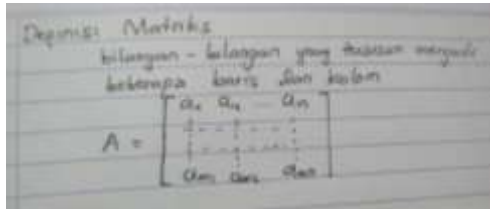 Depinisi Matriks
bilangan - bilangan yang tersusun menjadi
beberapa baris dan kolom
A =
a₁₁ a₁₂ ... a₁ₙ
aₘ₁ aₘ₂ aₘₙ